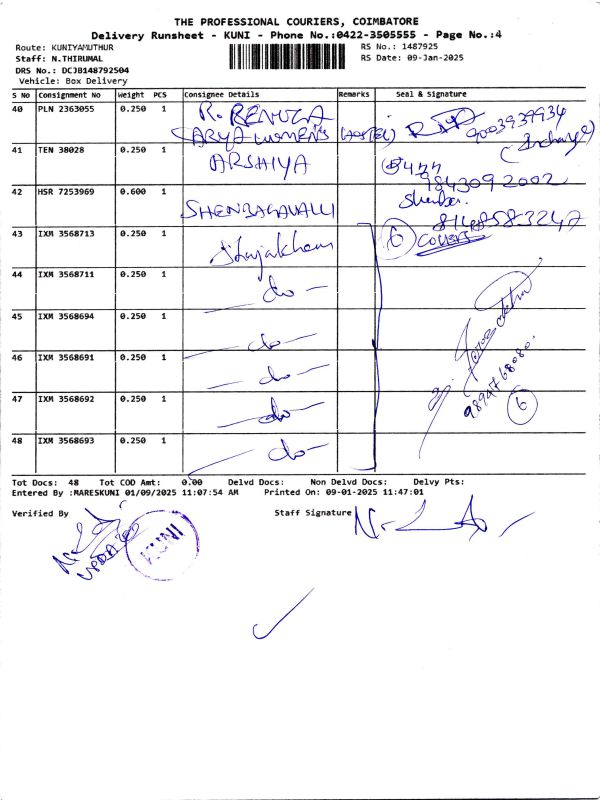 THE PROFESSIONAL COURIERS, COIMBATORE
Delivery Runsheet - KUNI - Phone No.:0422-3505555 - Page No.:4
Route: KUNIYAMUTHUR
RS No.: 1487925
Staff: N.THIRUMAL
RS Date: 09-Jan-2025
DRS No.: DCJB148792504
Vehicle: Box Delivery
S No Consignment No Weight PCS Consignee Details Remarks Seal & Signature
40 PLN 2363055 0.250 1 R. RENUGA
(ARYA WOMEN'S HOSTEL) 9003939934
(Incharge)
41 TEN 38028 0.250 1 ARSHIYA
9843092002
42 HSR 7253969 0.600 1 SHENBAGAVALLI
43 IXM 3568713 0.250 1 6 covers
44 IXM 3568711 0.250 1 - do -
45 IXM 3568694 0.250 1 - do -
46 IXM 3568691 0.250 1 - do -
47 IXM 3568692 0.250 1 - do -
48 IXM 3568693 0.250 1 - do -
9894768080.
6
Tot Docs: 48 Tot COD Amt: 0.00 Delvd Docs: Non Delvd Docs: Delvy Pts:
Entered By :MARESKUNI 01/09/2025 11:07:54 AM Printed On: 09-01-2025 11:47:01
Verified By
Staff Signature
KUNI